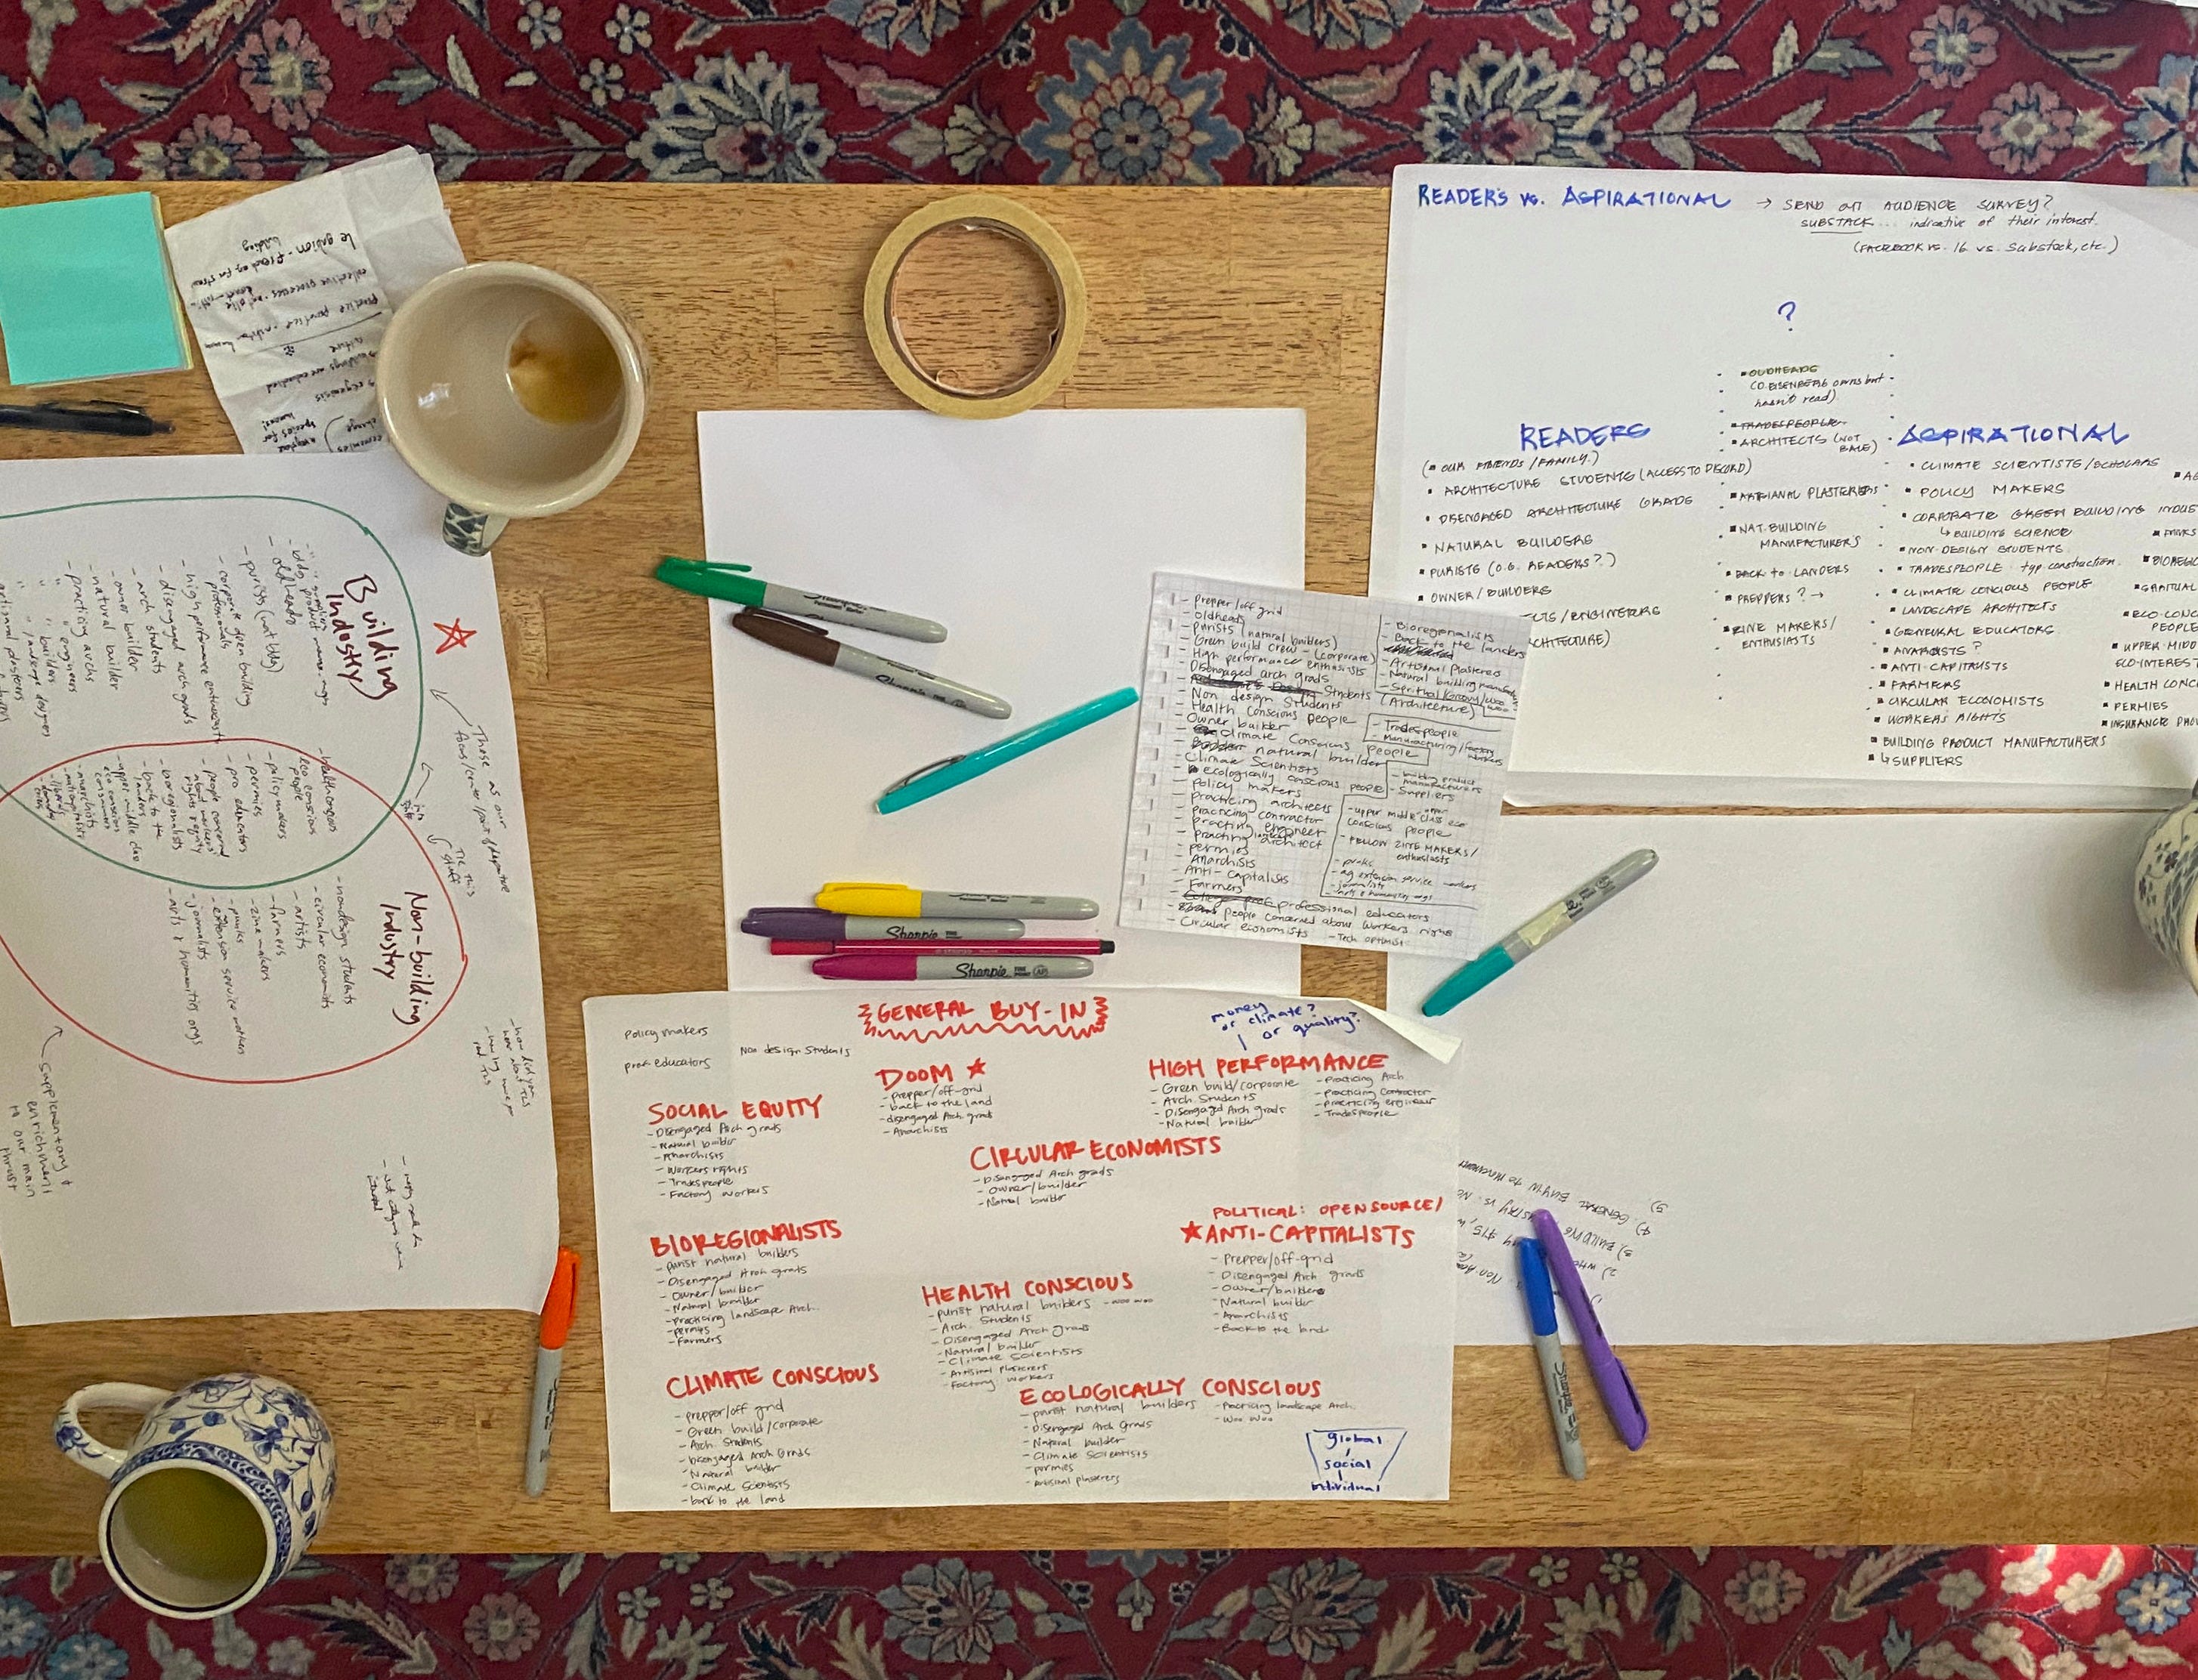 READERS vs. ASPIRATIONAL → SEND OUT AUDIENCE SURVEY?
SUBSTACK... indicative of their interest.
(FACEBOOK vs. IG vs. Substack, etc.)
?
• OLDHEADS
(D. EISENBERG owns but
hasn't read)
• TRADESPEOPLE
• ARCHITECTS (NOT
BALE)
• ARTISANAL PLASTERERS
• NAT. BUILDING
MANUFACTURER'S
• BACK to LANDERS
• PREPPERS? →
• ZINE MAKERS/
ENTHUSIASTS
READERS
(• OUR FRIENDS/FAMILY)
• ARCHITECTURE STUDENTS (ACCESS TO DISCORD)
• DISENGAGED ARCHITECTURE GRADS
• NATURAL BUILDERS
• PURISTS (O.G. READERS?)
• OWNER/BUILDERS
CTS/ENGINEERS
CHITECTURE)
ASPIRATIONAL
• CLIMATE SCIENTISTS/SCHOLARS
• POLICY MAKERS
• CORPORATE GREEN BUILDING INDUS
↳ BUILDING SCIENCE
• NON-DESIGN STUDENTS
• TRADESPEOPLE typ. construction.
• CLIMATE CONCIOUS PEOPLE
• LANDSCAPE ARCHITECTS
• GENERAL EDUCATORS
• ANARCHISTS?
• ANTI-CAPITALISTS
• FARMERS
• CIRCULAR ECONOMISTS
• WORKERS RIGHTS
• BUILDING PRODUCT MANUFACTURERS
↳ SUPPLIERS
• AG
• PUNKS
• BIOREGIO
• SPIRITUAL
• ECO-CONC
PEOPLE
• UPPER-MIDD
ECO-INTEREST
• HEALTH CONC
• PERMIES
• INSURANCE PROV
- prepper/off grid
- oldheads
- purists (natural builders)
- Green build crew - (corporate)
- High performance enthusiasts
- Disengaged arch grads
Students (Architecture)
- Non design Students
- Health Conscious people
- Owner builder
- Climate Conscious people
- natural builder
- Climate Scientists
- ecologically conscious people
- Policy makers
- practicing architects
- practicing contractor
- practicing engineer
- practicing landscape architect
- permies
- Anarchists
- Anti-capitalists
- Farmers
- professional educators
- people concerned about workers rights
- Circular economists
- Tech optimist
- Bioregionalists
- Back to the landers
- Artisanal Plasterers
- Natural building manufacturers
- Tradespeople
- Manufacturing/factory
workers
- building product
manufacturers
- Suppliers
- upper middle class eco
conscious people
- FELLOW ZINE MAKERS/
enthusiasts
- punks
- ag extension service workers
- journalists
- arts & humanities orgs
GENERAL BUY-IN
money
or climate?
or quality?
Policy makers
prof. educators
Non design Students
DOOM ★
- prepper/off-grid
- back to the land
- disengaged Arch grads
- Anarchists
HIGH PERFORMANCE
- Green build/corporate
- Arch. Students
- Disengaged Arch grads
- Natural builder
- Practicing Arch
- Practicing Contractor
- Practicing engineer
- Tradespeople
SOCIAL EQUITY
- Disengaged Arch grads
- Natural builder
- Anarchists
- Workers rights
- Tradespeople
- Factory workers
CIRCULAR ECONOMISTS
- Disengaged Arch grads
- Owner/builder
- Natural builder
BIOREGIONALISTS
- purist natural builders
- Disengaged Arch grads
- Owner/builder
- Natural builder
- Practicing landscape Arch.
- permies
- farmers
POLITICAL: OPEN SOURCE/
★ANTI-CAPITALISTS
- Prepper/off-grid
- Disengaged Arch grads
- Owner/builder
- Natural builder
- Anarchists
- Back to the land
HEALTH CONSCIOUS
- purist natural builders - woo woo
- Arch. Students
- Disengaged Arch grads
- Natural builder
- Climate Scientists
- Artisinal plasterers
- Factory workers
CLIMATE CONSCIOUS
- prepper/off grid
- Green build/corporate
- Arch. Students
- Disengaged Arch Grads
- Natural builder
- Climate Scientists
- back to the land
ECOLOGICALLY CONSCIOUS
- purist natural builders
- Disengaged Arch Grads
- Natural builder
- Climate Scientists
- permies
- Artisinal plasterers
- Practicing landscape Arch.
- Woo Woo
global
social
individual
Building
Industry
- bldg product manu. mngs
- oldheads
- purists (nat blds)
- corporate green building
professionals
- high performance enthusiasts
- disengaged arch grads
- arch students
- owner builder
- natural builder
- practicing archs
" engineers
" builders
" landscape designers
- artisanal plasterers
- health conscious
- eco conscious
people
- policymakers
- permies
- pro educators
- people concerned
about workers'
rights & equity
- bioregionalists
- back to the
landers
- upper middle class
eco conscious
consumers
- anarchists
- anticapitalists
Non-building
Industry
- nondesign students
- circular economists
- artists
- farmers
- zine makers
- punks
- extension service workers
- journalists
- arts & humanities orgs
These as our
TIE this
stuff
into
- how did you
hear about TLS
supplementary &
enrichment
to our main
thrust
4) GENERAL BUY IN
3) BUILDING
Sharpie
Sharpie
Sharpie